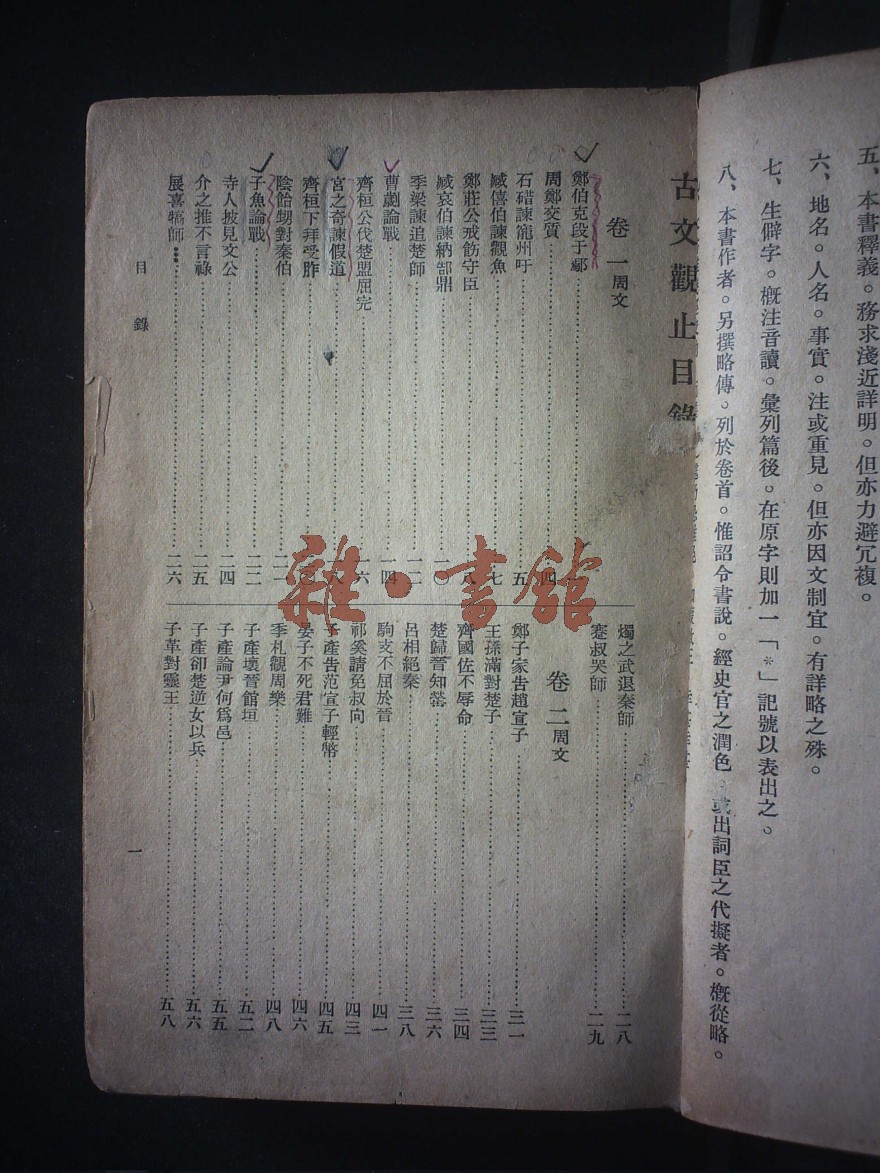 五、本書釋義。務求淺近詳明。但亦力避冗複。
六、地名。人名。事實。注或重見。但亦因文制宜。有詳略之殊。
七、生僻字。概注音讀。彙列篇後。在原字則加一「*」記號以表出之。
八、本書作者。另撰略傳。列於卷首。惟詔令書說。經史官之潤色。或出詞臣之代擬者。概從略。
古文觀止目錄
卷一周文
鄭伯克段于鄢
周鄭交質 四
石碏諫寵州吁 五
臧僖伯諫觀魚 七
鄭莊公戒飭守臣 八
臧哀伯諫納郜鼎 一〇
季梁諫追楚師 一二
曹劌論戰 一四
齊桓公伐楚盟屈完 一六
宮之奇諫假道 一八
齊桓下拜受胙
陰飴甥對秦伯 二一
子魚論戰 二二
寺人披見文公 二四
介之推不言祿 二五
展喜犒師 二六
燭之武退秦師 二八
蹇叔哭師 二九
卷二周文
鄭子家告趙宣子 三一
王孫滿對楚子 三三
齊國佐不辱命 三四
楚歸晉知罃 三六
呂相絕秦 三八
駒支不屈於晉 四一
祁奚請免叔向 四三
子產告范宣子輕幣 四五
晏子不死君難 四六
季札觀周樂 四八
子產壞晉館垣 五二
子產論尹何為邑 五五
子產卻楚逆女以兵 五六
子革對靈王 五八
目錄
一
雜·書館